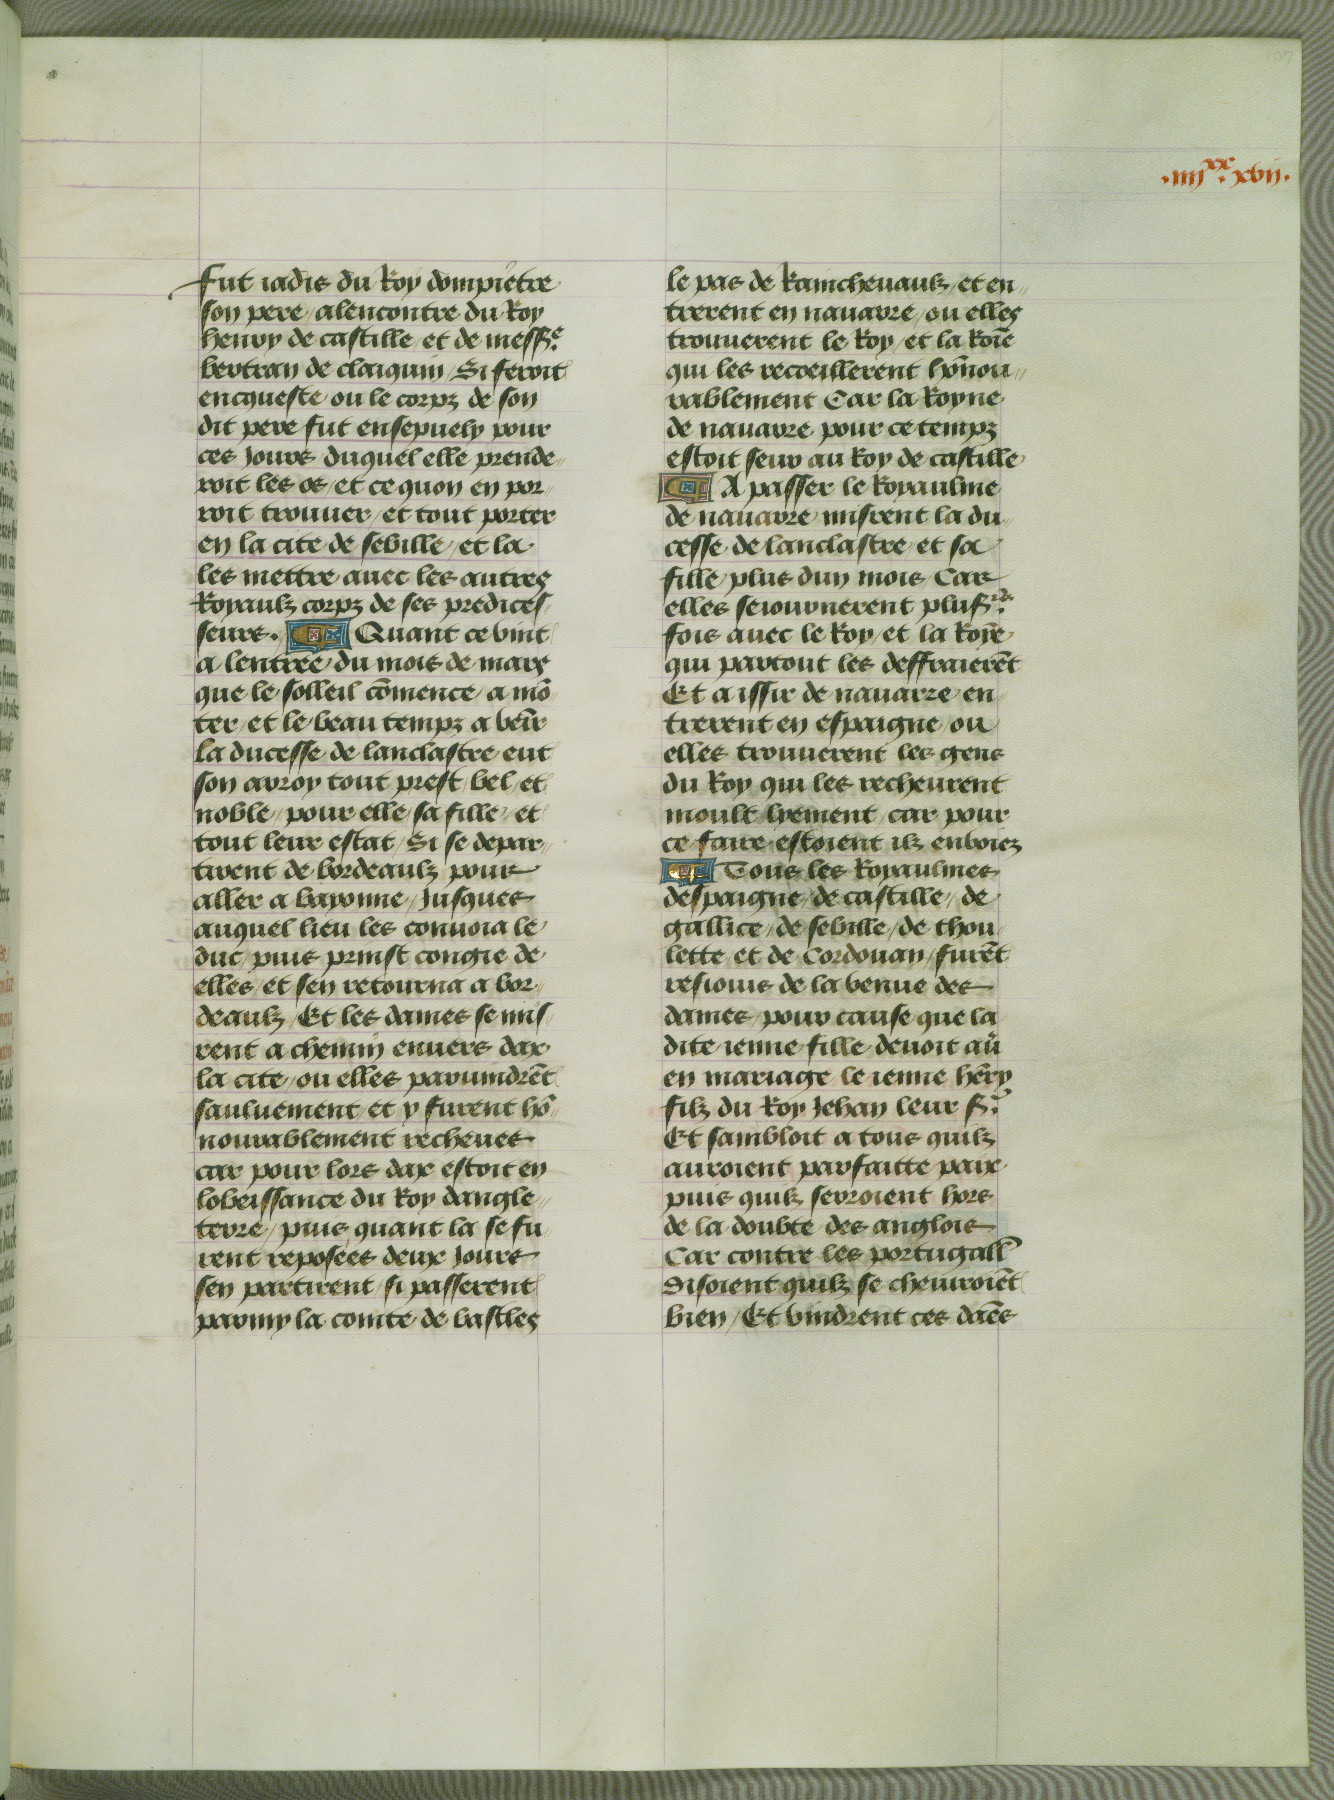 .iiij^xx. xvij.
fut iadis du Roy dompietre
son pere / alencontre du Roy
henry de castille / et de messr͛e
bertran de claiquin / Si feroit
encqueste ou le corpz de son
dit pere fut ensepuely pour
ces Jours duquel elle prende//
roit les os / et ce quon en por/
roit trouuer / et tout porter
en la cite de sebille / et la
les mettre auec les autres
Royaulz corpz de ses predices/
seurs. Quant ce vint
a lentree du mois de mars
que le solleil cōmence a mō
ter / et le beau tempz a ven̄r
la ducesse de lanclastre eut
son arroy tout prest / bel / et
noble / pour elle / sa fille / et
tout leur estat / Si se depar//
tirent de bordeaulz pour
aller a bayonne // Jusques
auquel lieu les conuoia le
duc / puis prinst congie de
elles / et sen retourna a bor/
deaulz / Et les dames se mis/
rent a chemin enuers dax
la cite / ou elles paruindrēt
sauluement et y furent hō/
nourablement recheues
car pour lors dax estoit en
lobeissance du Roy dangle//
terre / puis quant la se fu
rent reposees deux Jours
sen partirent / si passerent
parmy la comte de bastles
le pas de Raincheuaulz / et en//
trerent en nauarre / ou elles
trouuerent le Roy / et la Roīe
qui les recoeillerent hōnou//
rablement Car la Royne
de nauarre pour ce tempz
estoit seur au Roy de castille
A passer le Royaulme
de nauarre misrent la du//
cesse de lanclastre et sa
fille / plus dun mois / Car
elles seiournerent plusr͛s
fois auec le Roy / et la Roȳe
qui partout les deffraierēt
Et a issir de nauarre en/
trerent en espaigne / ou
elles trouuerent les gens
du Roy qui les recheurent
moult lyement / car pour
ce faire estoient ilz enboiez
Tous les Royaulmes
despaigne / de castille // de
gallice / de sebille / de thou
lette et de Cordouan / furēt
resiouis de la venue des
dames / pour cause que la
dite ienne fille deuoit au͛
en mariage le ienne hēry
filz du Roy Jehan leur sr͛
Et sambloit a tous quilz
auroient parfaitte paix
puis quilz serroient hors
de la doubte des anglois
Car contre les portugall̄
disoient quilz se cheuiroiēt
bien / Et vindrent ces dāes